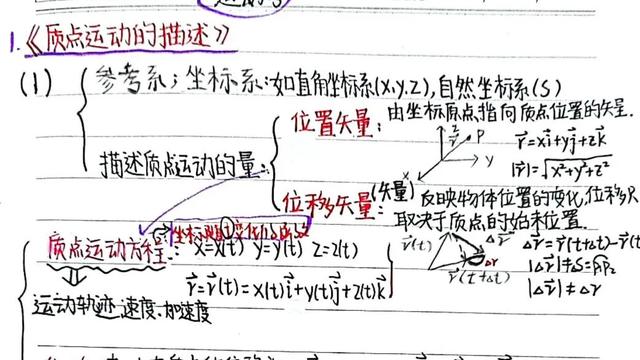 1.《质点运动的描述》
(1)
参考系；坐标系：如直角坐标系(x,y,z),自然坐标系(S)
描述质点运动的量：
位置矢量：由坐标原点指向质点位置的矢量.
z P y x
r⃗=xi⃗+yj⃗+zk⃗
|r⃗|=√x²+y²+z²
位移(矢量)：反映物体位置的变化,位移只
取决于质点的始末位置.
r⃗(t) Δr⃗ Δr r⃗(t+Δt)
Δr⃗=r⃗(t+Δt)-r⃗(t)
|Δr⃗|≠Δr
质点运动方程：x=x(t) y=y(t) z=z(t)
r⃗=r⃗(t)=x(t)i⃗+y(t)j⃗+z(t)k⃗
运动轨迹.速度.加速度